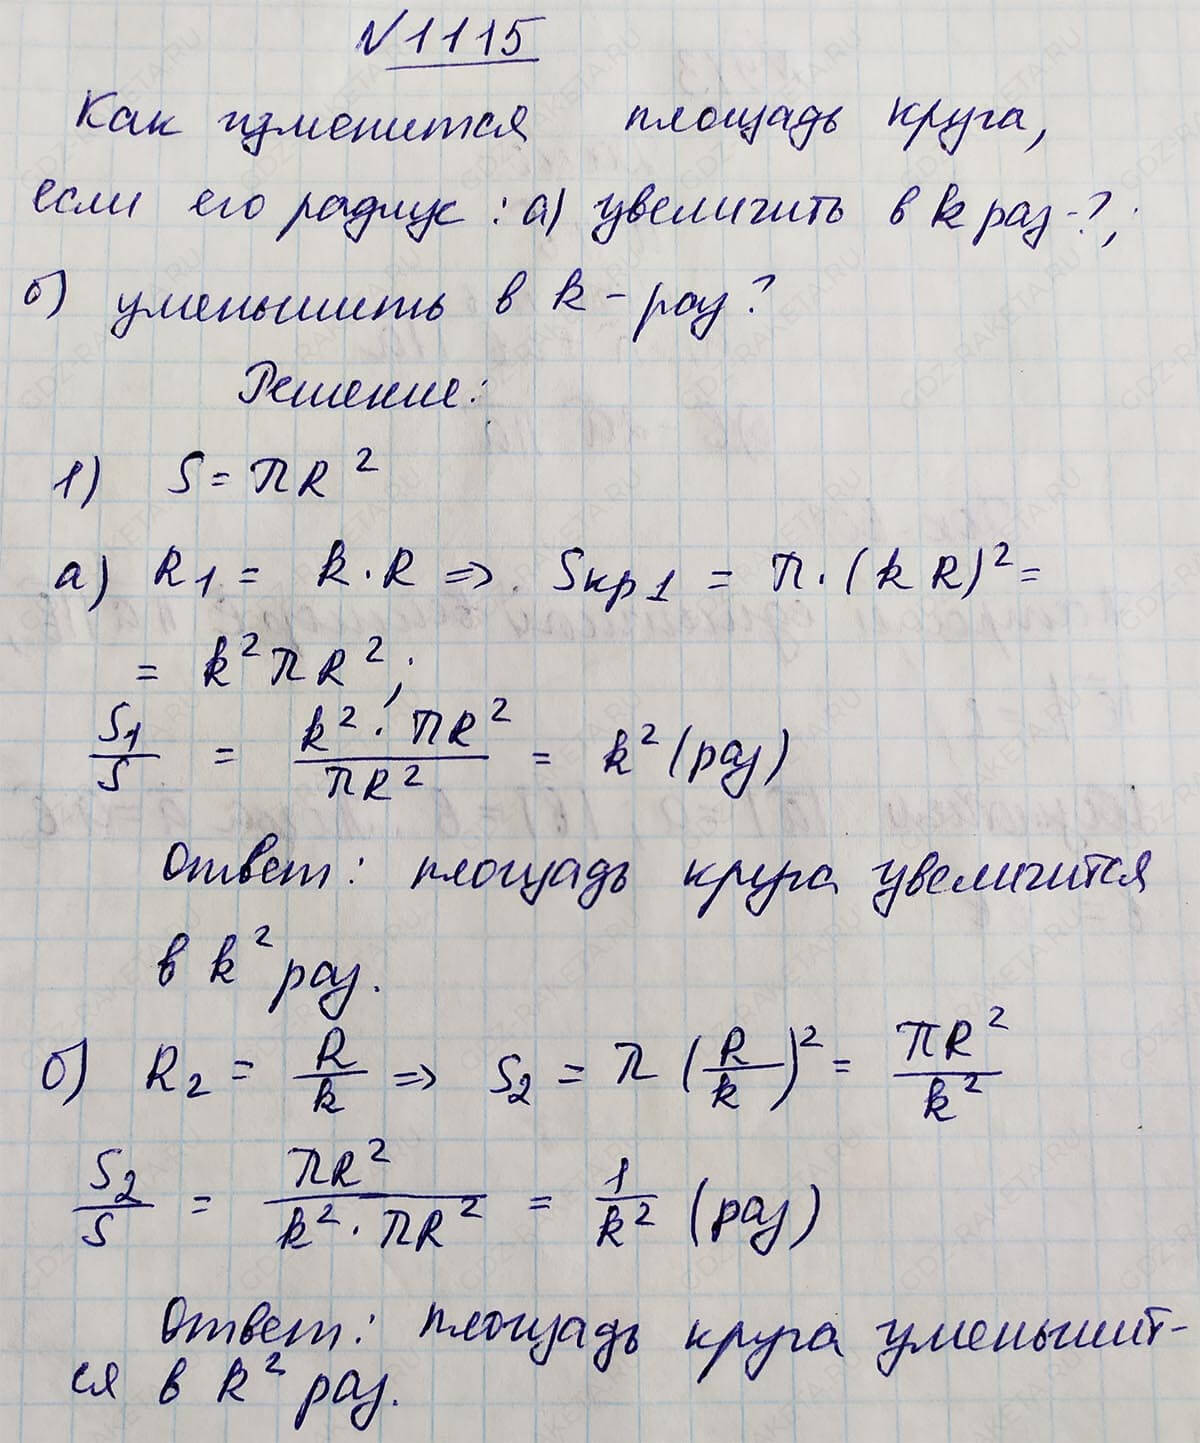 №1115
Как изменится площадь круга,
если его радиус: а) увеличить в k раз-?;
б) уменьшить в k - раз?
Решение:
1) S = πR²
а) R₁ = k·R => Sкр1 = π·(kR)² =
= k²πR²;
S₁/S = k²·πR²/πR² = k² (раз)
Ответ: площадь круга увеличится
в k² раз.
б) R₂ = R/k => S₂ = π(R/k)² = πR²/k²
S₂/S = πR²/k²·πR² = 1/k² (раз)
Ответ: площадь круга уменьшит-
ся в k² раз.
GDZ-RAKETA.RU